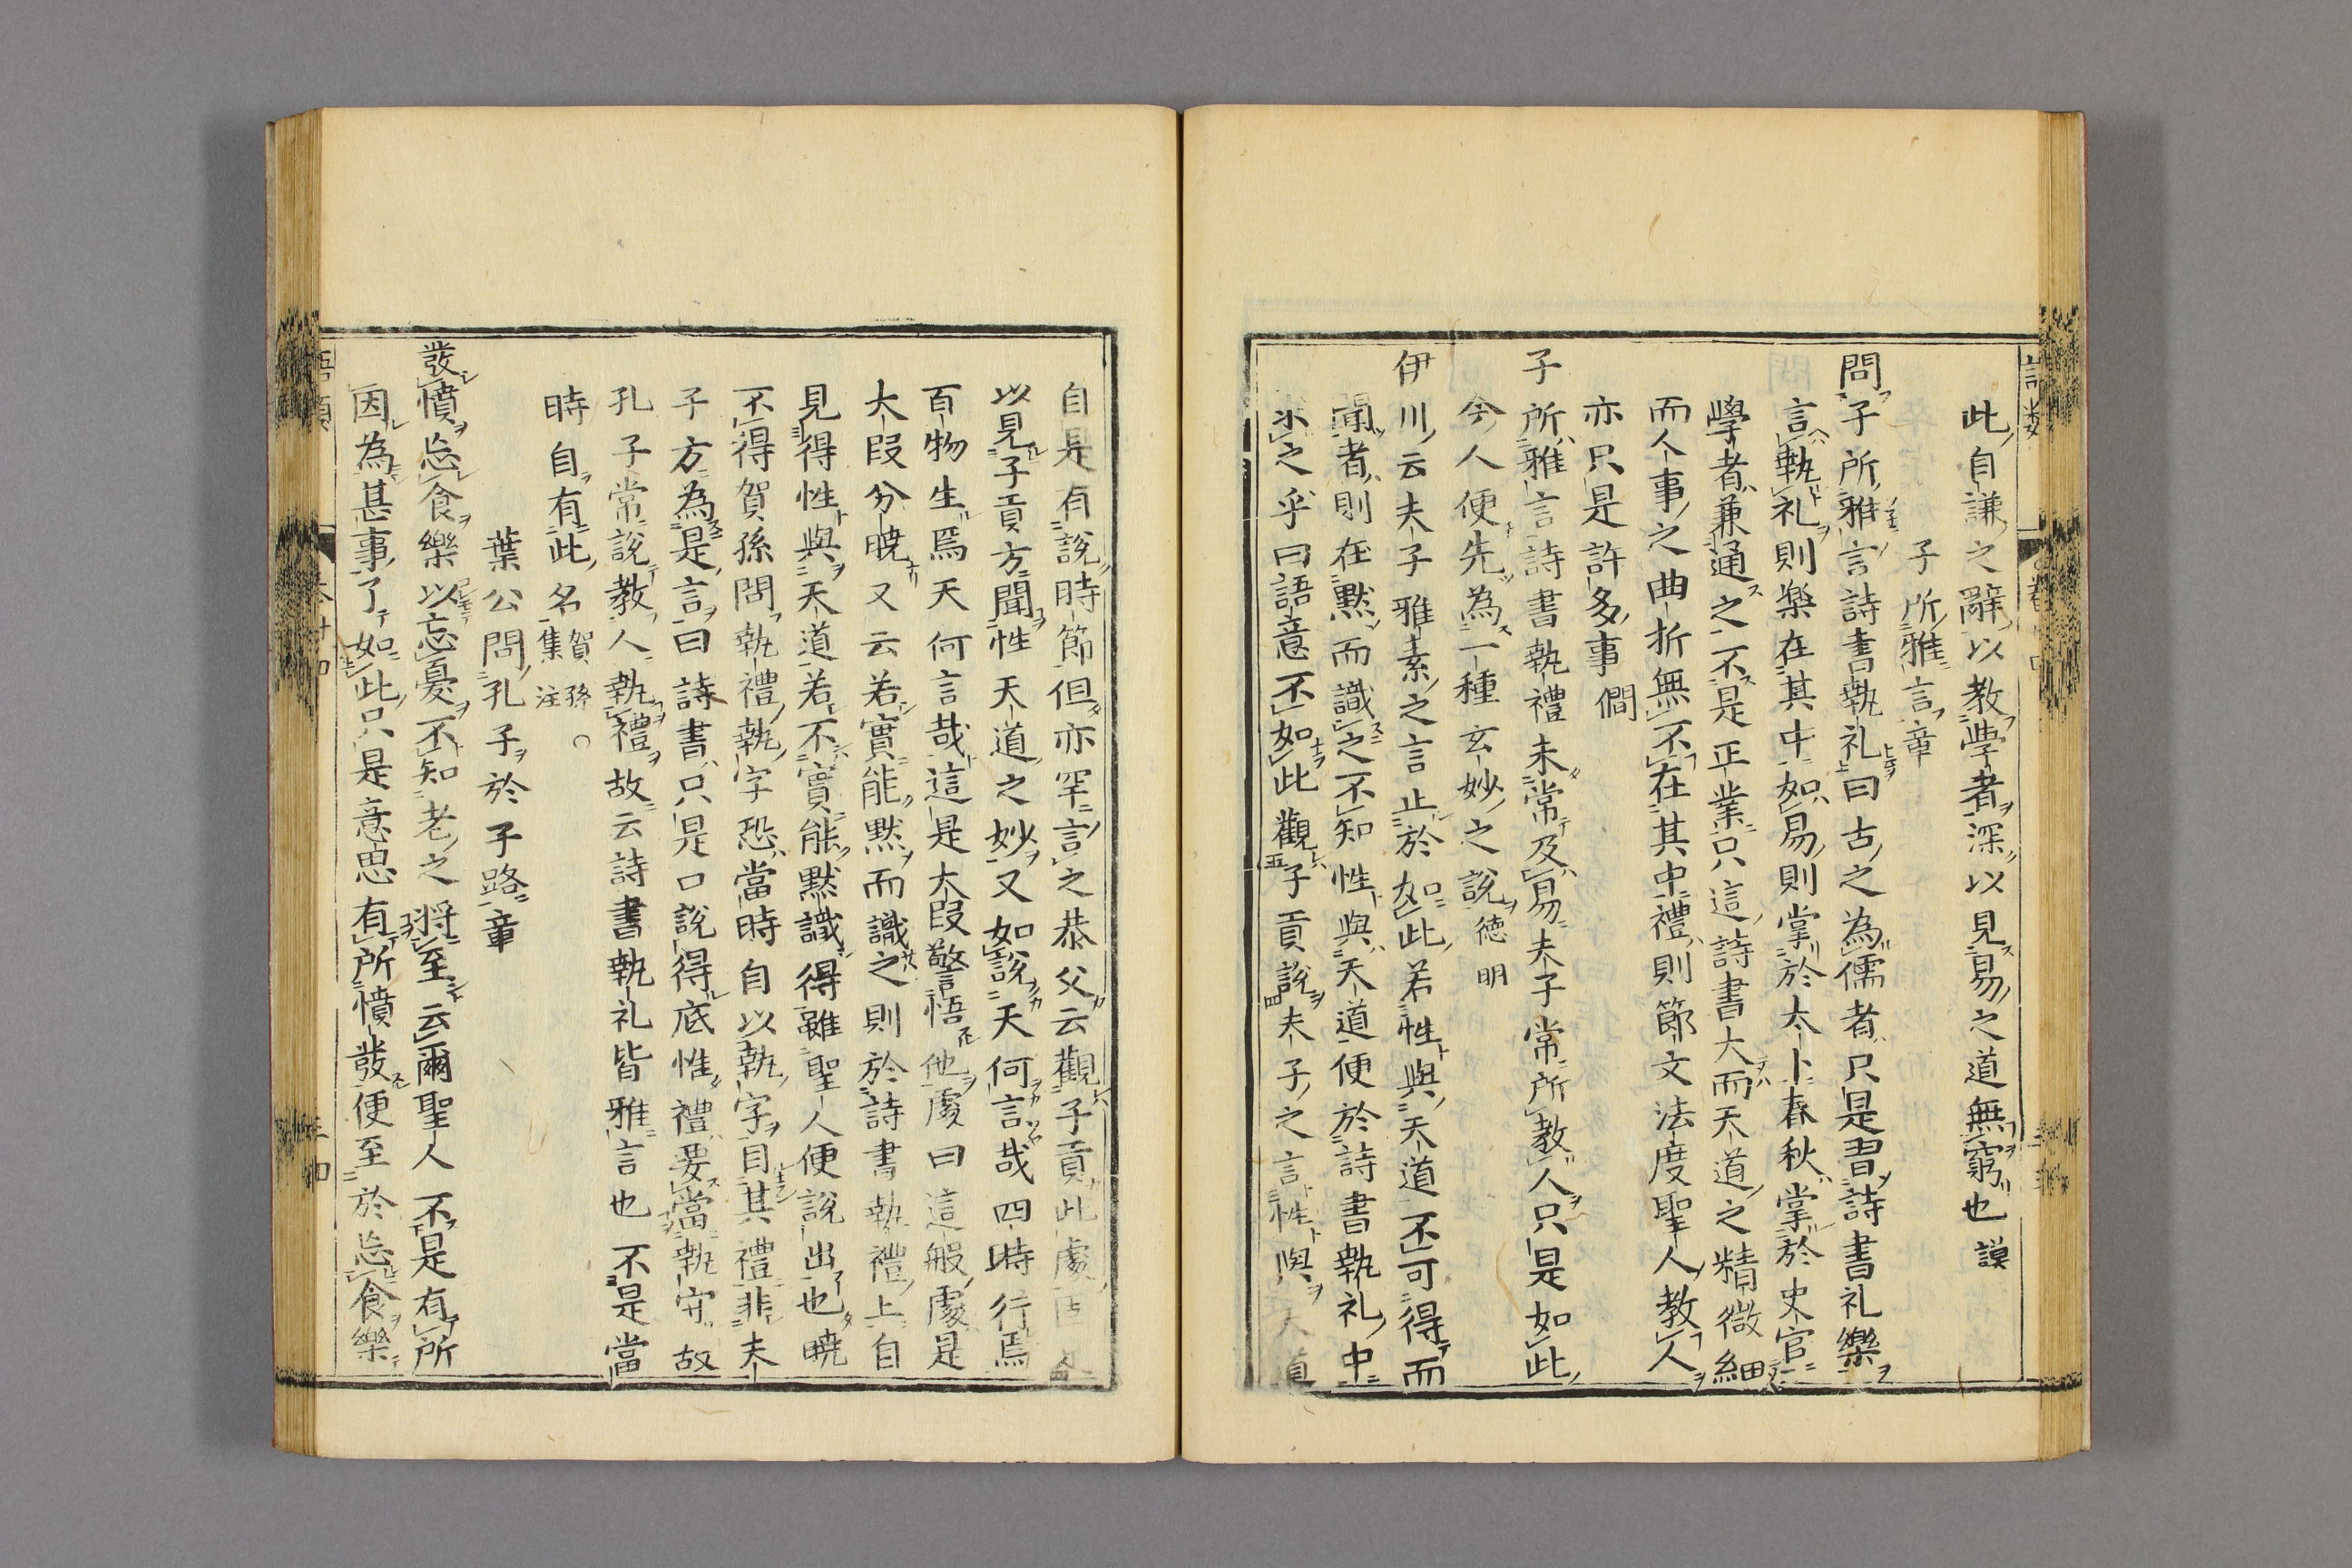 此自謙之辭以教學者深以見易之道無窮也謨
子所雅言章
問子所雅言詩書執礼曰古之為儒者只是習詩書礼樂
言執礼則樂在其中如易則掌於太卜春秋掌於史官
學者兼通之不是正業只這詩書大而天道之精微細
而人事之曲折無不在其中禮則節文法度聖人教人
亦只是許多事僩
子所雅言詩書執禮未常及易夫子常所教人只是如此
今人便先為一種玄妙之說德明
伊川云夫子雅素之言止於如此若性與天道不可得而
聞者則在默而識之不知性與天道便於詩書執礼中
求之乎曰語意不如此觀子貢說夫子之言性與天道
自是有說時節但亦罕言之恭父云觀子貢此處固足
以見子貢方聞性天道之妙又如說天何言哉四時行焉
百物生焉天何言哉這是大段警悟他處曰這般處是
大段分曉又云若實能默而識之則於詩書執禮上自
見得性與天道若不實能默識得雖聖人便說出也曉
不得賀孫問執禮執字恐當時自以執字目其禮非夫
子方為是言曰詩書只是口說得底惟禮要當執守故
孔子常說教人執禮故云詩書執礼皆雅言也不是當
時自有此名賀孫集注○
葉公問孔子於子路章
發憤忘食樂以忘憂不知老之將至云爾聖人不是有所
因為甚事了如此只是意思有所憤發便至於忘食樂